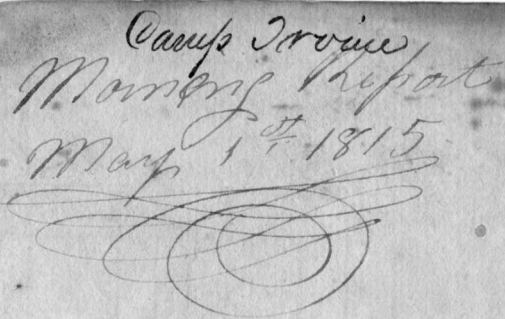 Camp Irvine
Morning Report
May 1st 1815